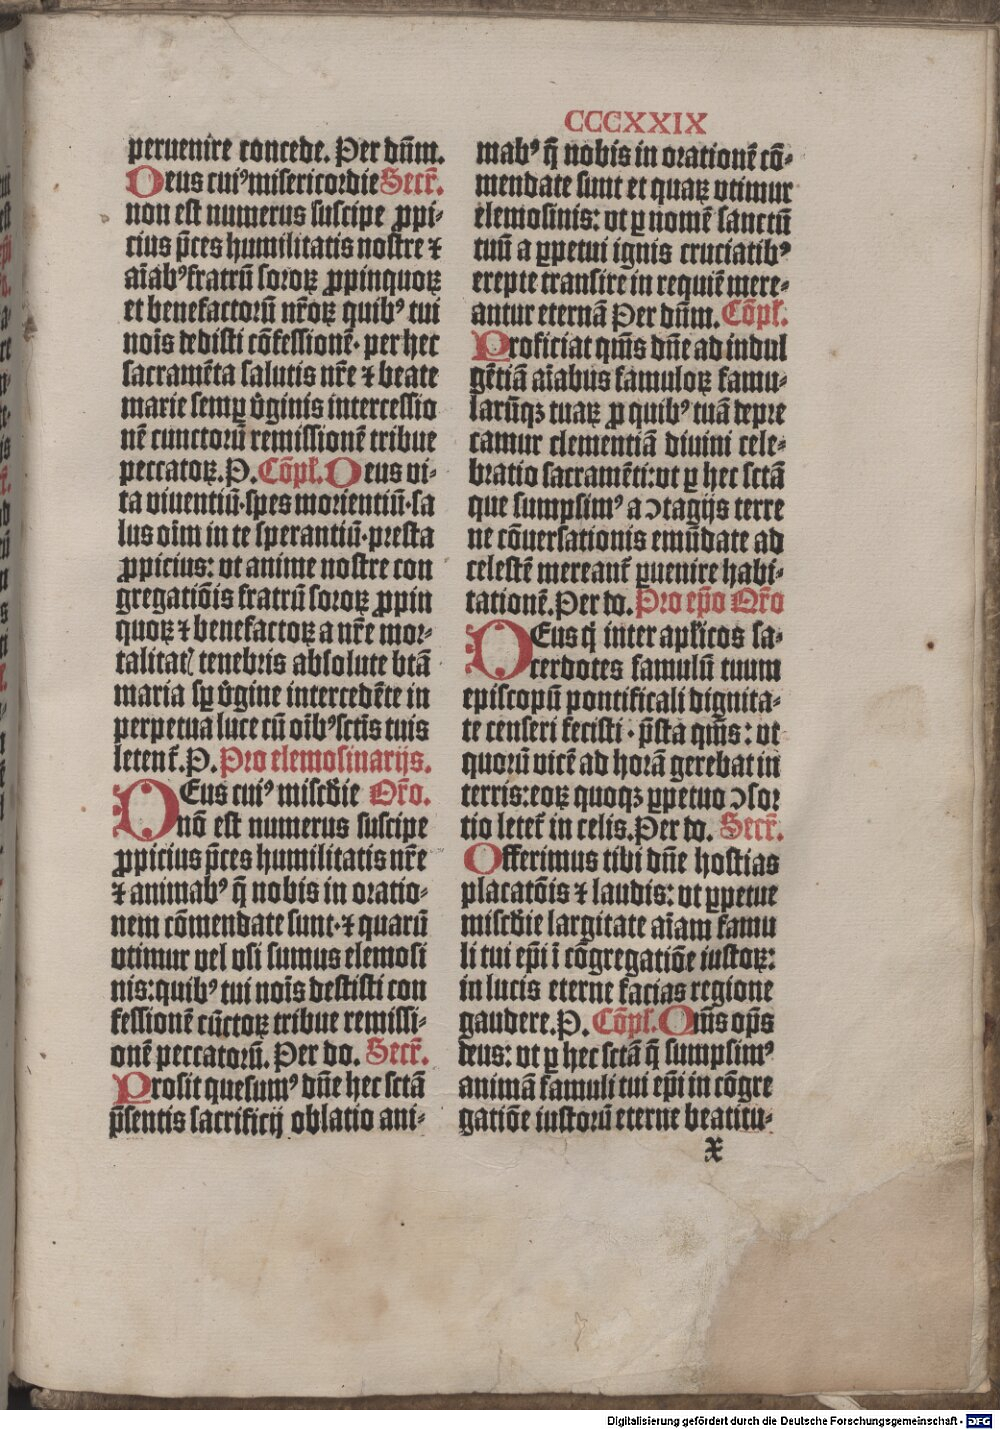 CCCXXIX
peruenire concede. Per dn̄m.
Deus cuiꝰ misericordie Secr̄.
non est numerus suscipe ꝓpi-
cius p̄ces humilitatis nostre ⁊
aīabꝰ fratrū soroꝝ ꝓpinquoꝝ
et benefactorū nr̄oꝝ quibꝰ tui
noīs dedisti cōfessionē· per hec
sacramēta salutis nr̄e ⁊ beate
marie semꝑ v̄ginis intercessio
nē cunctorū remissionē tribue
peccatoꝝ. P. Cōpl̄. Deus vi-
ta viuentiū·spes morientiū·sa
lus oīm in te sperantiū·presta
ꝓpicius: vt anime nostre con
gregatiōis fratrū soroꝝ ꝓpin
quoꝝ ⁊ benefactoꝝ a nr̄e mor-
talitatꝭ tenebris absolute btā
maria sꝑ v̄gine intercedēte in
perpetua luce cū oībꝰ sctīs tuis
letent̄. P. Pro elemosinarijs.
DEus cuiꝰ misc̄die Or̄o.
nō est numerus suscipe
ꝓpicius p̄ces humilitatis nr̄e
⁊ animabꝰ q̄ nobis in oratio-
nem cōmendate sunt·⁊ quarū
vtimur vel vsi sumus elemosi
nis: quibꝰ tui noīs destisti con
fessionē cūctoꝝ tribue remissi-
onē peccatorū. Per do. Secr̄.
Prosit quesumꝰ dn̄e hec sctā
p̄sentis sacrificij oblatio ani-
mabꝰ q̄ nobis in orationē cō-
mendate sunt et quaꝝ vtimur
elemosinis: vt ꝑ nomē sanctū
tuū a ꝑpetui ignis cruciatibꝰ
erepte transire in requiē mere-
antur eternā Per dn̄m. Cōpl̄.
Proficiat qm̄s dn̄e ad indul
gētiā aīabus famuloꝝ famu-
larūqꝫ tuaꝝ ꝓ quibꝰ tuā depre
camur clementiā diuini cele-
bratio sacramēti: vt ꝑ hec sctā
que sumpsimꝰ a ꝯtagijs terre
ne cōuersationis emūdate ad
celestē mereant̄ ꝑuenire habi-
tationē. Per do. Pro ep̄o Or̄o
DEus q̄ inter apl̄icos sa-
cerdotes famulū tuum
episcopū pontificali dignita-
te censeri fecisti · p̄sta qm̄s: vt
quorū vicē ad horā gerebat in
terris: eoꝝ quoqꝫ ꝑpetuo ꝯsor
tio letet̄ in celis. Per do. Secr̄.
Offerimus tibi dn̄e hostias
placatōis ⁊ laudis: vt ꝑpetue
misc̄die largitate aīam famu
li tui ep̄i ī cōgregatiōe iustoꝝ:
in lucis eterne facias regione
gaudere. P. Cōpl̄. Om̄s op̄s
deus: vt ꝑ hec sctā q̄ sumpsimꝰ
animā famuli tui ep̄i in cōgre
gatiōe iustorū eterne beatitu-
x
Digitalisierung gefördert durch die Deutsche Forschungsgemeinschaft - DFG